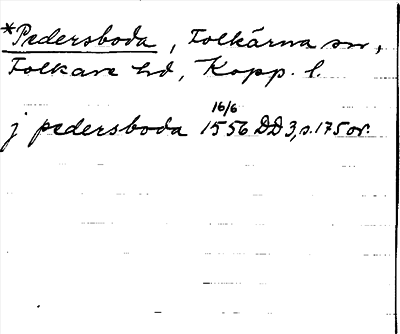 *Pedersboda, Folkärna sn,
Folkare hd, Kopp. l.
16/6
j pedersboda 1556 DD 3, s. 175 or.